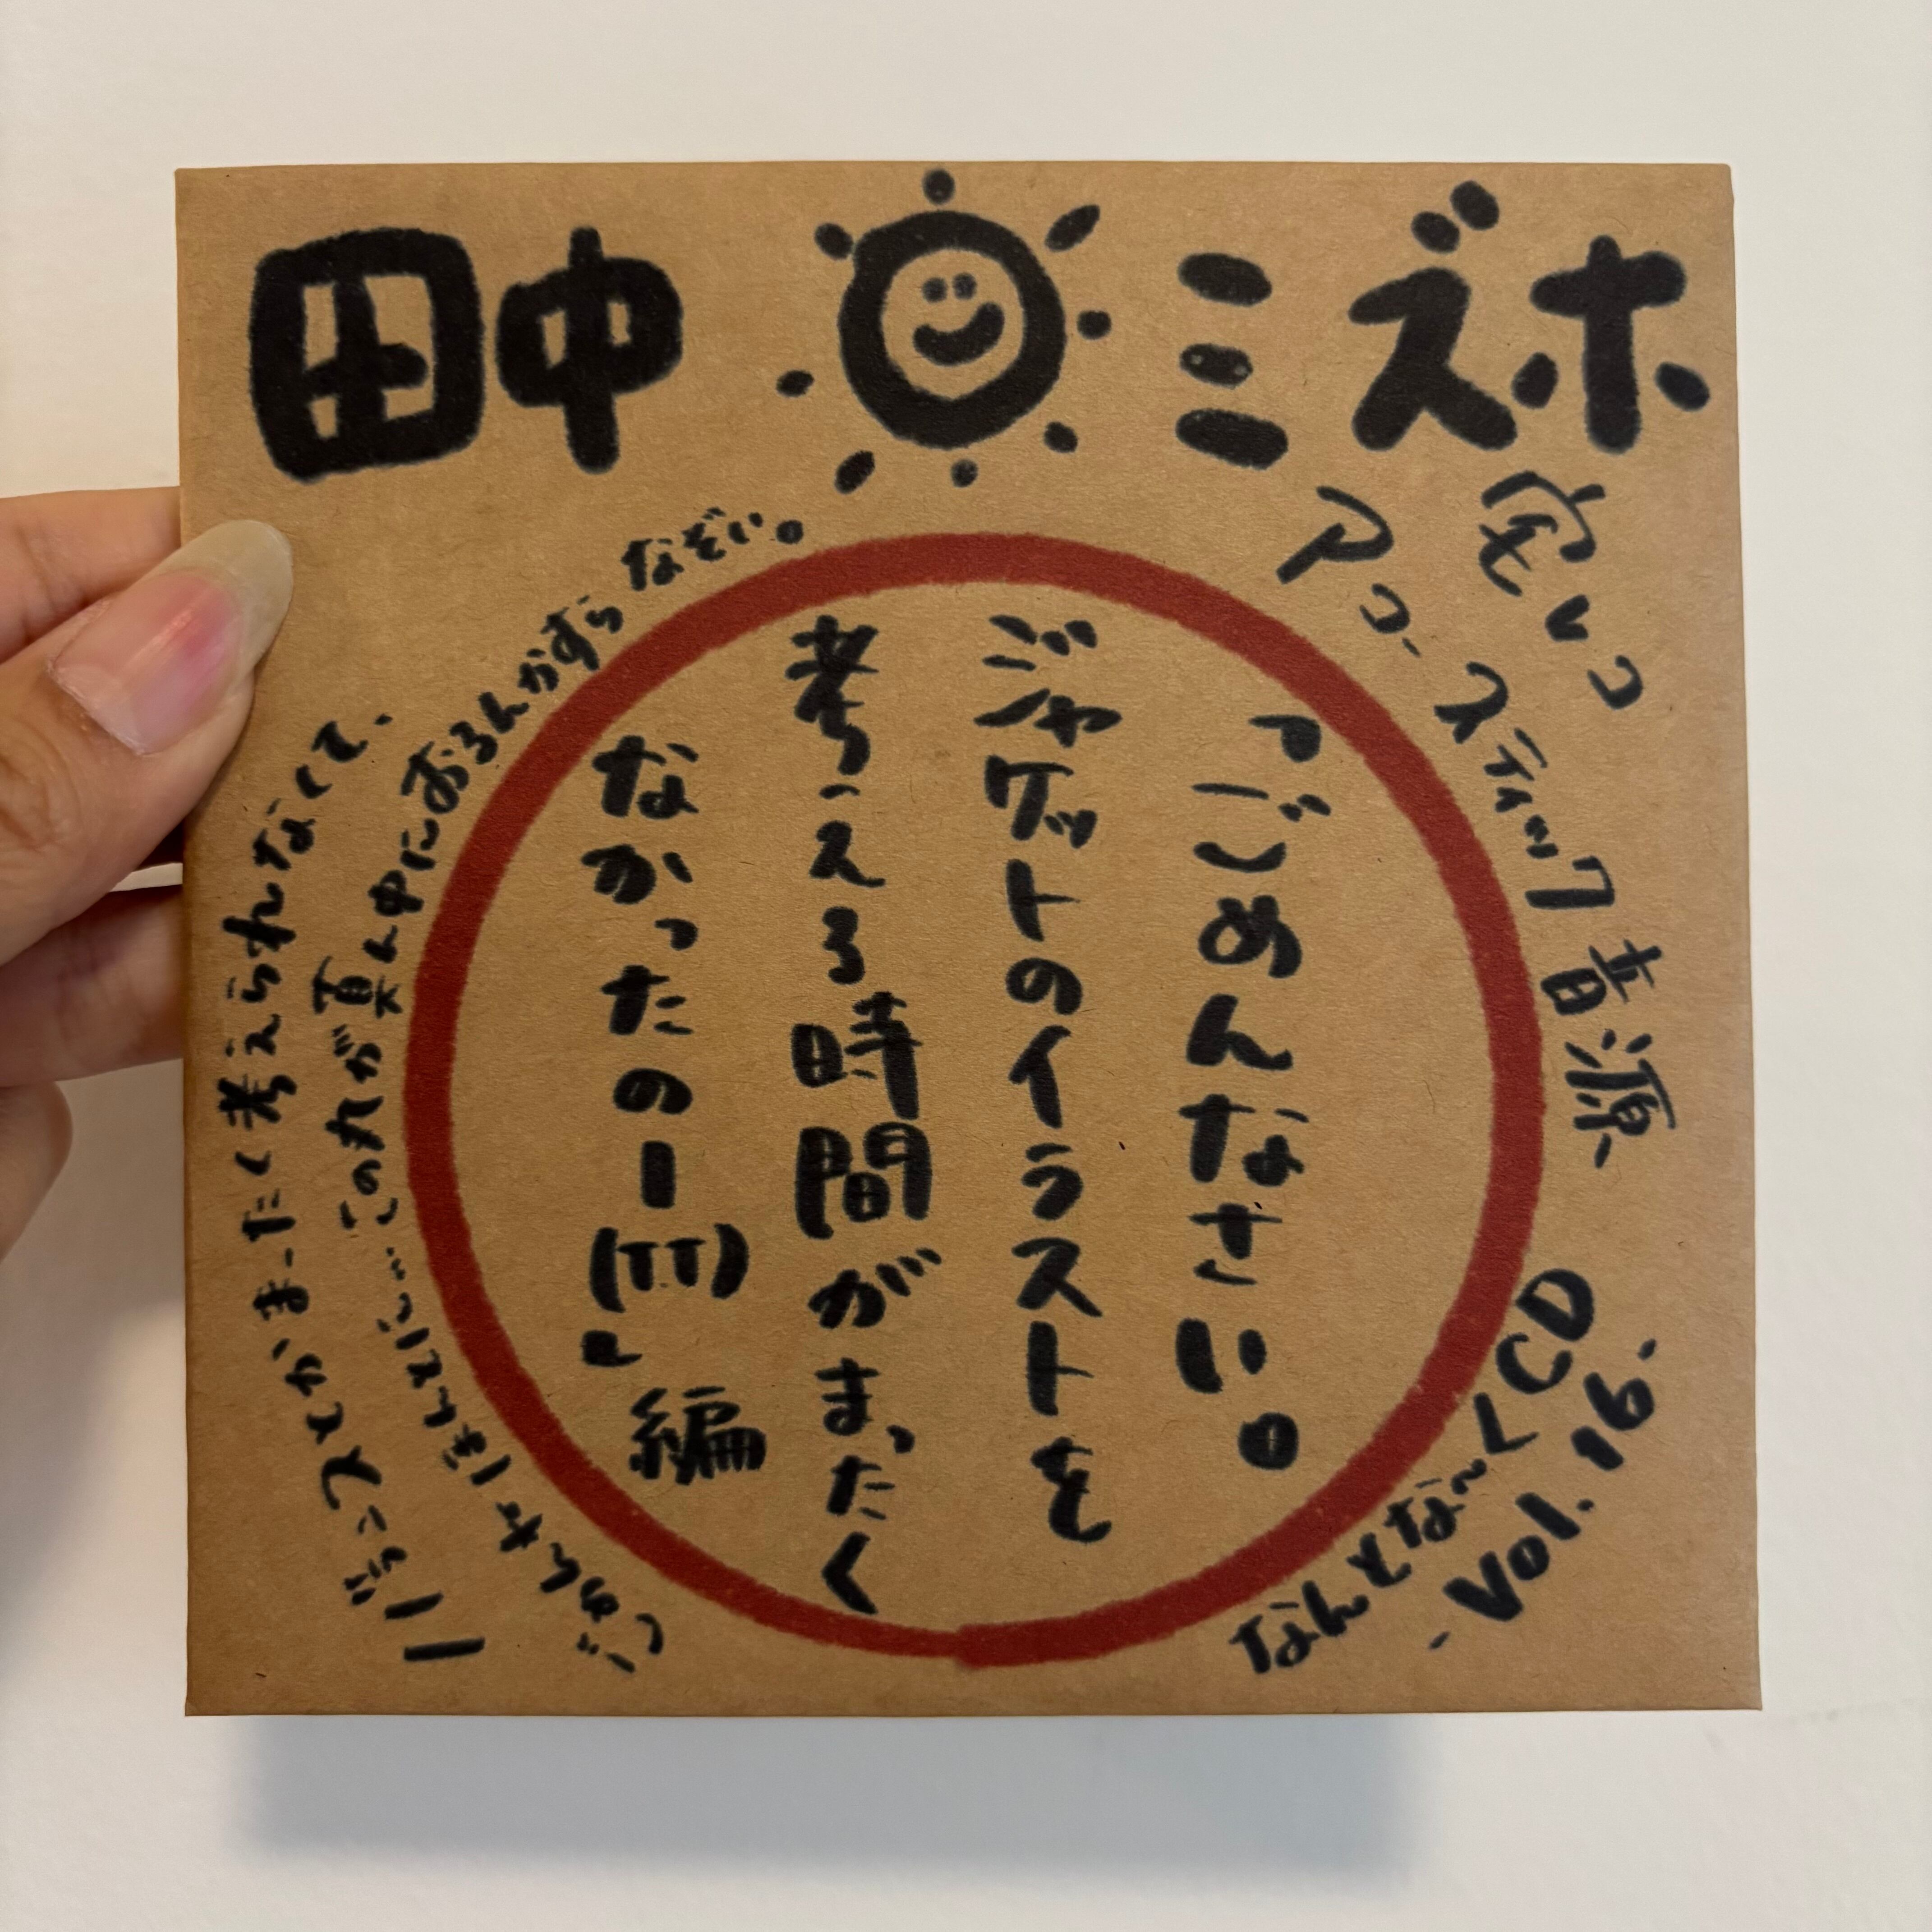 田中ミズホ
家レコ
アコースティック音源
『ごめんなさい。
ジャケットのイラストを
考える時間がまったく
なかったのー(TT)』編
なんとな〜くCD
-Vol.16.-
イラストとかまったく考えられなくて、
ごめんやほんとに…この丸が真ん中におるんかすらなぞい。